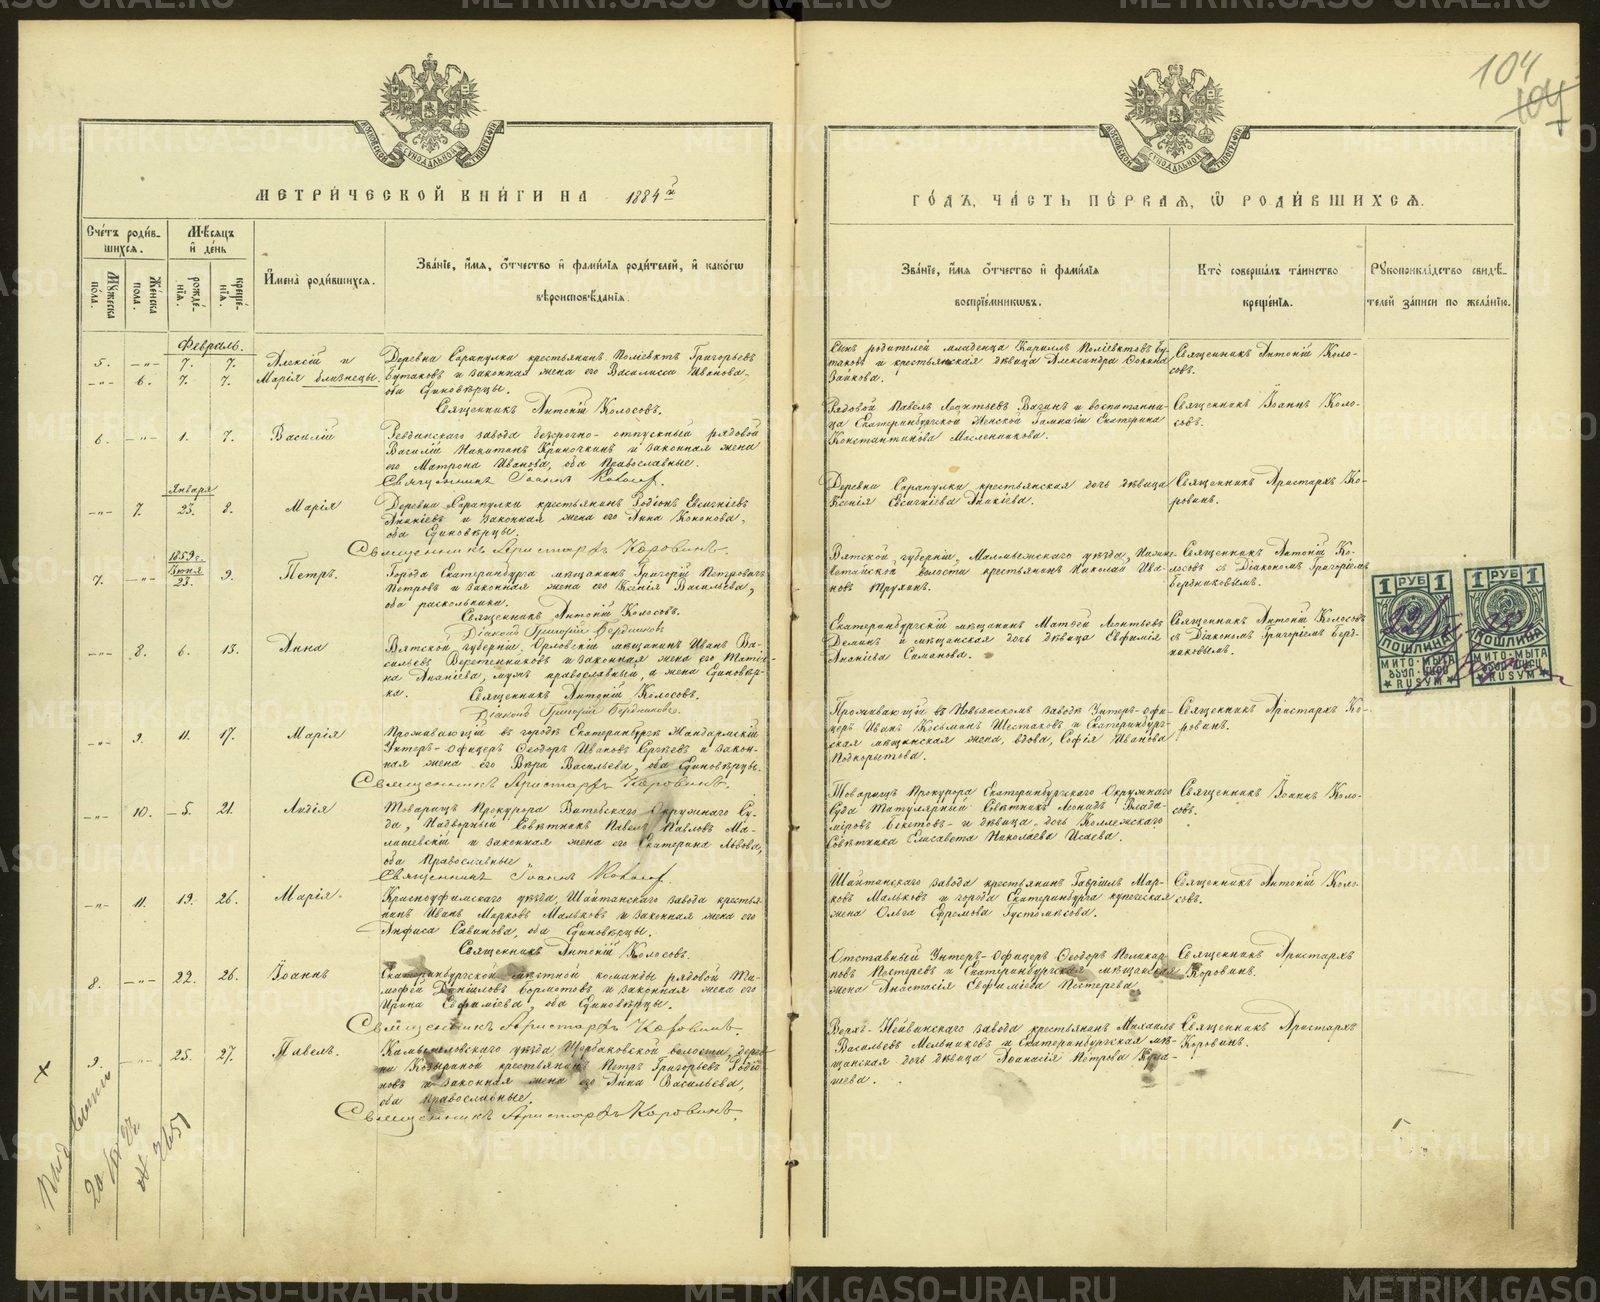 104
104
МОСКОВСКОЙ СѴНОДАЛЬНОЙ ТИПОГРАФІИ
МОСКОВСКОЙ СѴНОДАЛЬНОЙ ТИПОГРАФІИ
МЕТРИ́ЧЕСКОЙ КНИ́ГИ НА 1884й
ГО́ДЪ, ЧА́СТЬ ПЕ́РВАЯ, Ѡ РОДИ́ВШИХСЯ.
Сче́тъ роди́в-
шихся.
Мꙋжеска по́ла.
Же́нска пола.
Мѣ́сяцъ
и҆ де́нь
рожде́-нїя.
креще́-нїя.
И҆мена̀ роди́вшихся.
Зва́нїе, и҆́мя, ѻ҆́тчество и҆ фами́лїя роди́телей, и҆ како́гѡ
вѣроисповѣ́данїя.
Зва́нїе, и҆́мя ѻ҆́тчество и҆ фами́лїя
воспрїе́мниковъ.
Кто̀ соверша́лъ та́инство
креще́нїя.
Рꙋкоприкла́дство свидѣ́-
телей за́писи по жела́нїю.
Февраль.
5. -„- 7. 7. Алексій и
-„- 6. 7. 7. Марія близнецы
Деревни Сарапулки крестьянинъ Поліевктъ Григорьевъ
Бутаковъ и законная жена его Василисса Иванова,
оба Единовѣрцы.
Священникъ Антоній Колосовъ.
Сынъ родителей младенца Кириллъ Поліевктовъ Бу-
таковъ и крестьянская дѣвица Александра
Зайкова.
Священникъ Антоній Коло-
совъ.
6. -„- 1. 7. Василій
Ревдинскаго завода безсрочно-отпускный рядовой
Василій Никитинъ и законная жена
его Матрона Иванова, оба Православные.
Священникъ Іоаннъ Колосов.
Рядовой Павелъ Леонтьевъ Вагинъ и воспитанни-
ца Екатеринбургской Женской Гимназіи Екатерина
Константинова Масленникова.
Священникъ Іоаннъ Коло-
совъ.
Января
-„- 7. 23. 8. Марія
Деревни Сарапулки крестьянинъ Родіонъ Евсигніевъ
Ананіевъ и законная жена его Анна Кононова,
оба Единовѣрцы.
Священникъ Аристархъ Коровинъ.
Деревни Сарапулки крестьянская дочь дѣвица
Ксенія Евсигніева Ананіева.
Священникъ Аристархъ Ко-
ровинъ.
1859 г.
Іюня
7. -„- 23. 9. Петръ.
Города Екатеринбурга мѣщанинъ Григорій Петровичъ
Петровъ и законная жена его Ксенія Васильева,
оба раскольники.
Священникъ Антоній Колосовъ.
Діаконъ Григорій Бердниковъ
Вятской губерніи, Малмыжскаго уѣзда,
волости крестьянинъ Николай Ива-
новъ Трухинъ.
Священникъ Антоній Ко-
лосовъ съ Діакономъ Григоріемъ
Бердниковымъ.
-„- 8. 6. 13. Анна
Вятской губерніи, Орловскій мѣщанинъ Иванъ Ва-
сильевъ Веретенниковъ и законная жена его Татія-
на Ананіева, мужъ православный, а жена Единовѣр-
ка.
Священникъ Антоній Колосовъ.
Діаконъ Григорій Бердниковъ.
Екатеринбургскій мѣщанинъ Матѳей Леонтьевъ
Деминъ и мѣщанская дочь дѣвица Евфимія
Ананіева Симанова.
Священникъ Антоній Колосовъ
съ Діакономъ Григоріемъ Берд-
никовымъ.
-„- 9. 11. 17. Марія
Проживающій въ городѣ Екатеринбургѣ Жандармскій
Унтеръ-Офицеръ Ѳеодоръ Ивановъ Сергѣевъ и закон-
ная жена его Вѣра Васильева, оба Единовѣрцы.
Священникъ Аристархъ Коровинъ.
Проживающій въ Невьянскомъ заводѣ Унтеръ-Офи-
церъ Иванъ Кузьминъ Шестаковъ и Екатеринбург-
ская мѣщанская жена, вдова, Софія Иванова
Подкорытова.
Священникъ Аристархъ Ко-
ровинъ.
-„- 10. 5. 21. Лидія
Товарищъ Прокурора Витебскаго Окружнаго Су-
да, Надворный Совѣтникъ Павелъ Павловъ Ма-
лишевскій и законная жена его Екатерина Львова,
оба Православные
Священникъ Іоаннъ Колосов.
Товарищъ Прокурора Екатеринбургскаго Окружнаго
Суда Титулярный Совѣтникъ Леонидъ Влади-
міровъ Бекетовъ и дѣвица, дочь Коллежскаго
Совѣтника Елисавета Николаева Исаева.
Священникъ Іоаннъ Коло-
совъ.
-„- 11. 19. 26. Марія.
Красноуфимскаго уѣзда, Шайтанскаго завода крестья-
нинъ Иванъ Марковъ Мальковъ и законная жена его
Анфиса Савинова, оба Единовѣрцы.
Священникъ Антоній Колосовъ.
Шайтанскаго завода крестьянинъ Гавріилъ Мар-
ковъ Мальковъ и города Екатеринбурга купеческая
жена Ольга Ефремова Густомесова.
Священникъ Антоній Коло-
совъ.
8. -„- 22. 26. Іоаннъ
Екатеринбургской мѣстной команды рядовой Ти-
моѳей Даниловъ Бормотовъ и законная жена его
Ирина Ефиміева, оба Единовѣрцы.
Священникъ Аристархъ Коровинъ.
Отставный Унтеръ-Офицеръ Ѳеодоръ Поликар-
повъ Пестеревъ и Екатеринбургская мѣщанская
жена Анастасія Евфиміева Пестерева.
Священникъ Аристархъ
Коровинъ.
9. -„- 25. 27. Павелъ.
Камышловскаго уѣзда, Щербаковской волости, дерев-
ни Козыриной крестьянинъ Петръ Григорьевъ
и законная жена его Анна Васильева,
оба православные.
Священникъ Аристархъ Коровинъ.
Верхъ-Нейвинскаго завода крестьянинъ Михаилъ
Васильевъ Мельниковъ и Екатеринбургская мѣ-
щанская дочь дѣвица Аѳанасія Петрова
Священникъ Аристархъ
Коровинъ.
1 РУБ 1
ПОШЛИНА
МИТО·МЫТА
RUSYM
1 РУБ 1
ПОШЛИНА
МИТО·МЫТА
RUSYM
METRIKI.GASO-URAL.RU